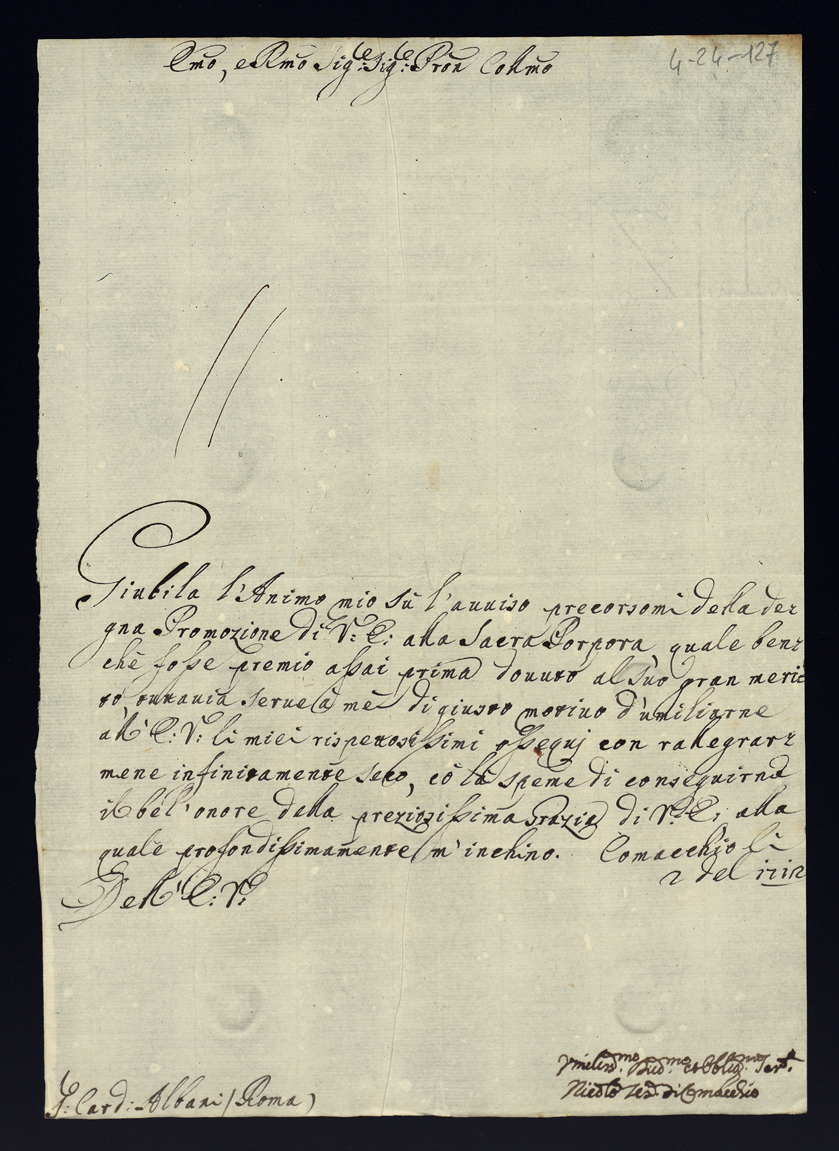 Emo, e Rmo Sig.re Sig.re Pron Collmo
4-24-127
Giubila l'Animo mio sù l'auuiso precorsomi della de=
gna Promozione di V: E: alla Sacra Porpora, quale ben=
chè fosse premio assai prima douuto al suo gran meri=
to, tutauia serue à me di giusto motiuo d'umiliarne
all' E: V: li miei rispettosissimi ossequj con rallegrar=
mene infinitamente seco, cō la speme di conseguirne
il bel'onore della preziosissima Grazia di V: E: alla
quale profondissimamente m'inchino. Comacchio li
2 del 1712
Dell' E: V:
Vmiliss.mo Diu.mo et Oblig.mo Ser.re
Nicolò Ves.o di Comacchio
S: Card: Albani (Roma)